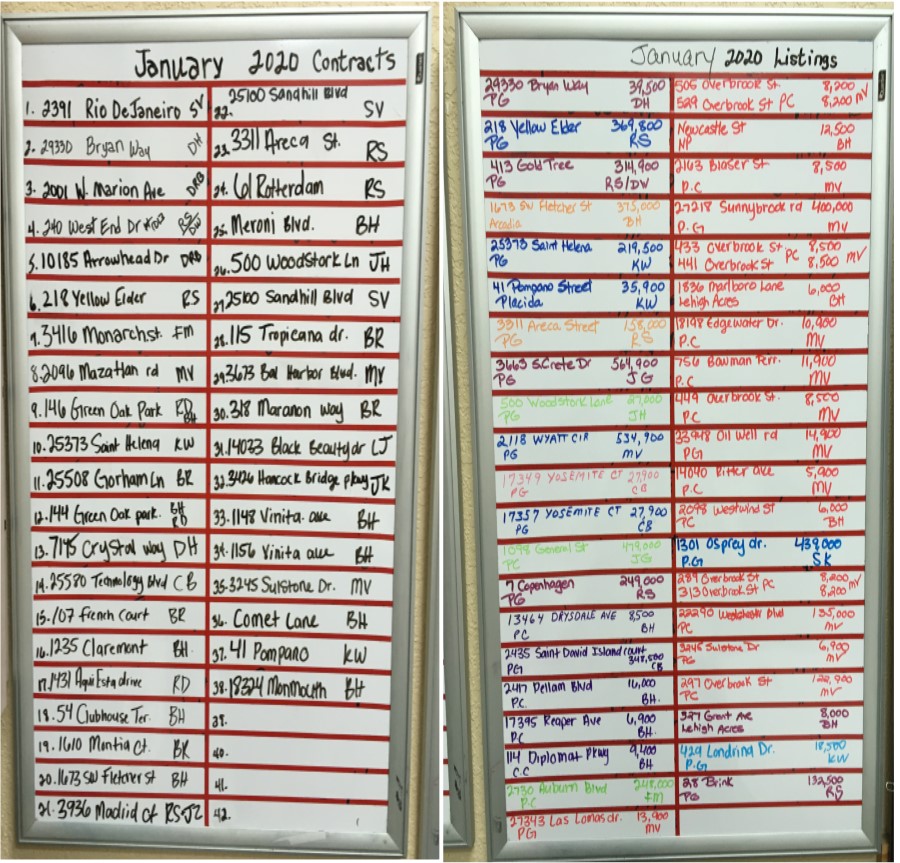 January 2020 Contracts
1. 2391 Rio DeJaneiro SV
2. 29330 Bryan Way DH
3. 2001 W. Marion Ave DRB
4. 240 West End Dr
5. 10185 Arrowhead Dr DRB
6. 218 Yellow Elder RS
7. 3416 Monarch st. FM
8. 2096 Mazatlan rd MV
9. 146 Green Oak Park RD BH
10. 25373 Saint Helena KW
11. 25508 Gorham Ln BR
12. 144 Green Oak park. BH RD
13. 7145 Crystal way DH
14. 25580 Technology Blvd CB
15. 107 French Court BR
16. 1235 Claremont BH
17. 1431 Aqui Esta drive RD
18. 54 Clubhouse Ter. BH
19. 1610 Mantia Ct. BR
20. 1673 SW Fletcher St BH
21. 3936 Madrid ct RS-JZ
22. 25100 Sandhill Blvd
SV
23. 3311 Areca St. RS
24. 61 Rotterdam RS
25. Meroni Blvd. BH
26. 500 Woodstork Ln JH
27. 25100 Sandhill Blvd SV
28. 115 Tropicana dr. BR
29. 3673 Bal Harbor Blvd. MV
30. 318 Maranon Way BR
31. 14033 Black Beauty dr LJ
32. 3426 Hancock Bridge pkwy JK
33. 1148 Vinita. ave BH
34. 1156 Vinita ave BH
35. 3245 Sulstone Dr. MV
36. Comet Lane BH
37. 41 Pompano KW
38. 18324 Monmouth BH
39.
40.
41.
42.
January 2020 Listings
29330 Bryan Way 39,500
PG DH
218 Yellow Elder 369,800
PG RS
413 Gold Tree 314,900
PG RS/DW
1673 SW Fletcher St 375,000
Arcadia BH
25373 Saint Helena 219,500
PG KW
41 Pompano Street 35,900
Placida KW
3311 Areca Street 158,000
PG RS
3663 S.Crete Dr 564,900
PG JG
500 Woodstork Lane 27,000
PG JH
2118 WYATT CIR 534,900
PG MV
17349 YOSEMITE CT 27,900
PG CB
17357 YOSEMITE CT 27,900
PG CB
1098 General St 479,000
PC JG
7 Copenhagen 249,000
PG RS
13464 DRYSDALE AVE 8,500
PC BH
2435 Saint David Island court
PG 348,500 CB
2417 Pellam Blvd 16,000
P.C. BH.
17395 Reaper Ave 6,900
PC BH.
114 Diplomat Pkwy 9,400
C.C BH
2730 Auburn Blvd 248,000
P.C FM
27343 Las Lomas dr. 13,900
PG MV
505 Overbrook St 8,200
529 Overbrook St PC 8,200 MV
Newcastle St 12,500
NP BH
2163 Blaser St 8,500
P.C. MV
27218 Sunnybrook rd 400,000
P.G MV
433 Overbrook St. PC 8,500
441 Overbrook St 8,500 MV
1836 Marlboro Lane 6,000
Lehigh Acres BH
18198 Edgewater Dr. 10,900
P.C. MV
756 Bowman Terr. 11,900
P.C MV
449 Overbrook St. 8,500
P.C. MV
33948 Oil Well rd 14,900
PG MV
14040 Ritter ave 5,900
P.C MV
2098 Westwind St 6,000
PC BH
1301 Osprey dr. 439,000
P.G SK
289 Overbrook St PC 8,200
313 Overbrook St 8,200 MV
22290 Westchester Blvd 135,000
PC MV
3245 Sulstone Dr 6,900
PG MV
297 Overbrook St 122,900
PC MV
327 Grant Ave 8,000
Lehigh Acres BH
429 Londrina Dr. 18,500
P.G KW
28 Brink 132,500
PG RS